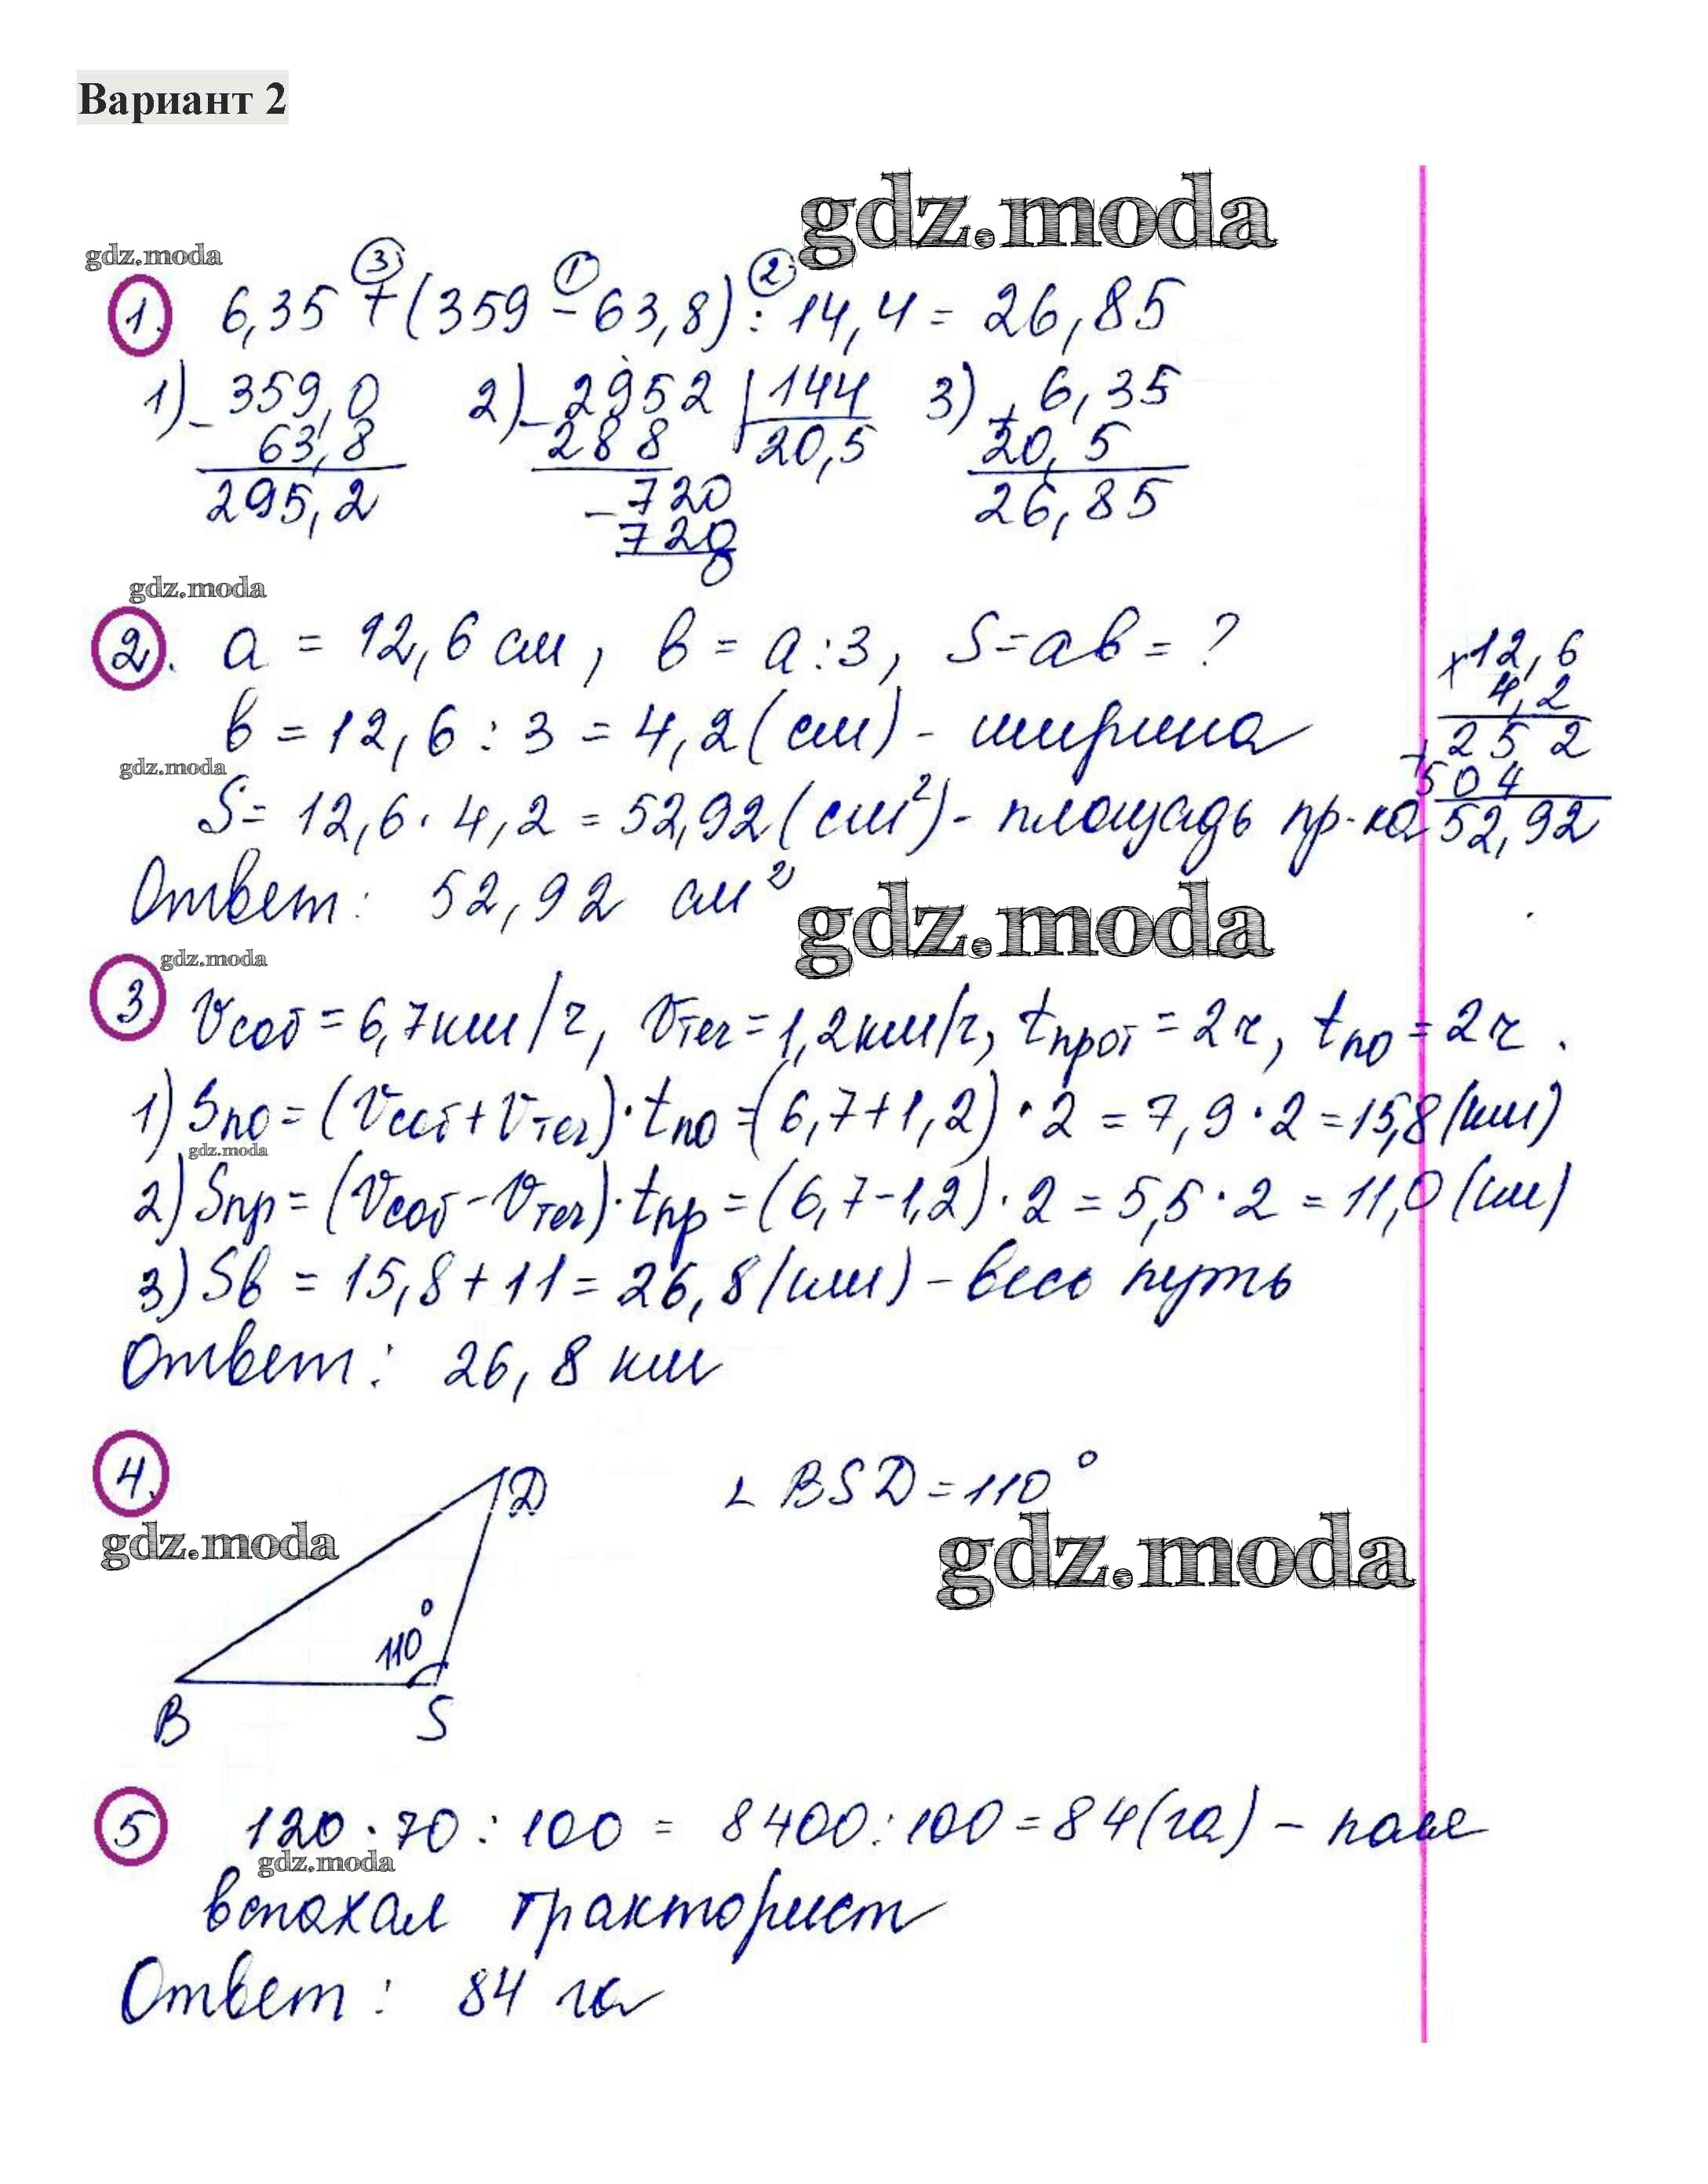 Вариант 2
gdz.moda
gdz.moda
3 1 2
1. 6,35 + (359 - 63,8) : 14,4 = 26,85
1) - 359,0 2) - 2952 | 144 3) + 6,35
63,8 288 20,5 20,5
295,2 - 720 26,85
720
0
gdz.moda
2. a = 12,6 см, в = a : 3, S = aв = ? × 12,6
4,2
в = 12,6 : 3 = 4,2 (см) - ширина + 252
gdz.moda 504
S = 12,6 · 4,2 = 52,92 (см²) - площадь пр-ка 52,92
Ответ: 52,92 см²
gdz.moda
gdz.moda
3 Vсоб = 6,7 км/ч, Vтеч = 1,2 км/ч, tпрот = 2 ч, tпо = 2 ч.
1) Sпо = (Vсоб + Vтеч) · tпо = (6,7 + 1,2) · 2 = 7,9 · 2 = 15,8 (км)
gdz.moda
2) Sпр = (Vсоб - Vтеч) · tпр = (6,7 - 1,2) · 2 = 5,5 · 2 = 11,0 (км)
3) Sв = 15,8 + 11 = 26,8 (км) - весь путь
Ответ: 26,8 км
4. D ∠ BSD = 110°
gdz.moda
gdz.moda
110°
B S
5 120 · 70 : 100 = 8400 : 100 = 84 (га) - поле
gdz.moda
вспахал тракторист
Ответ: 84 га